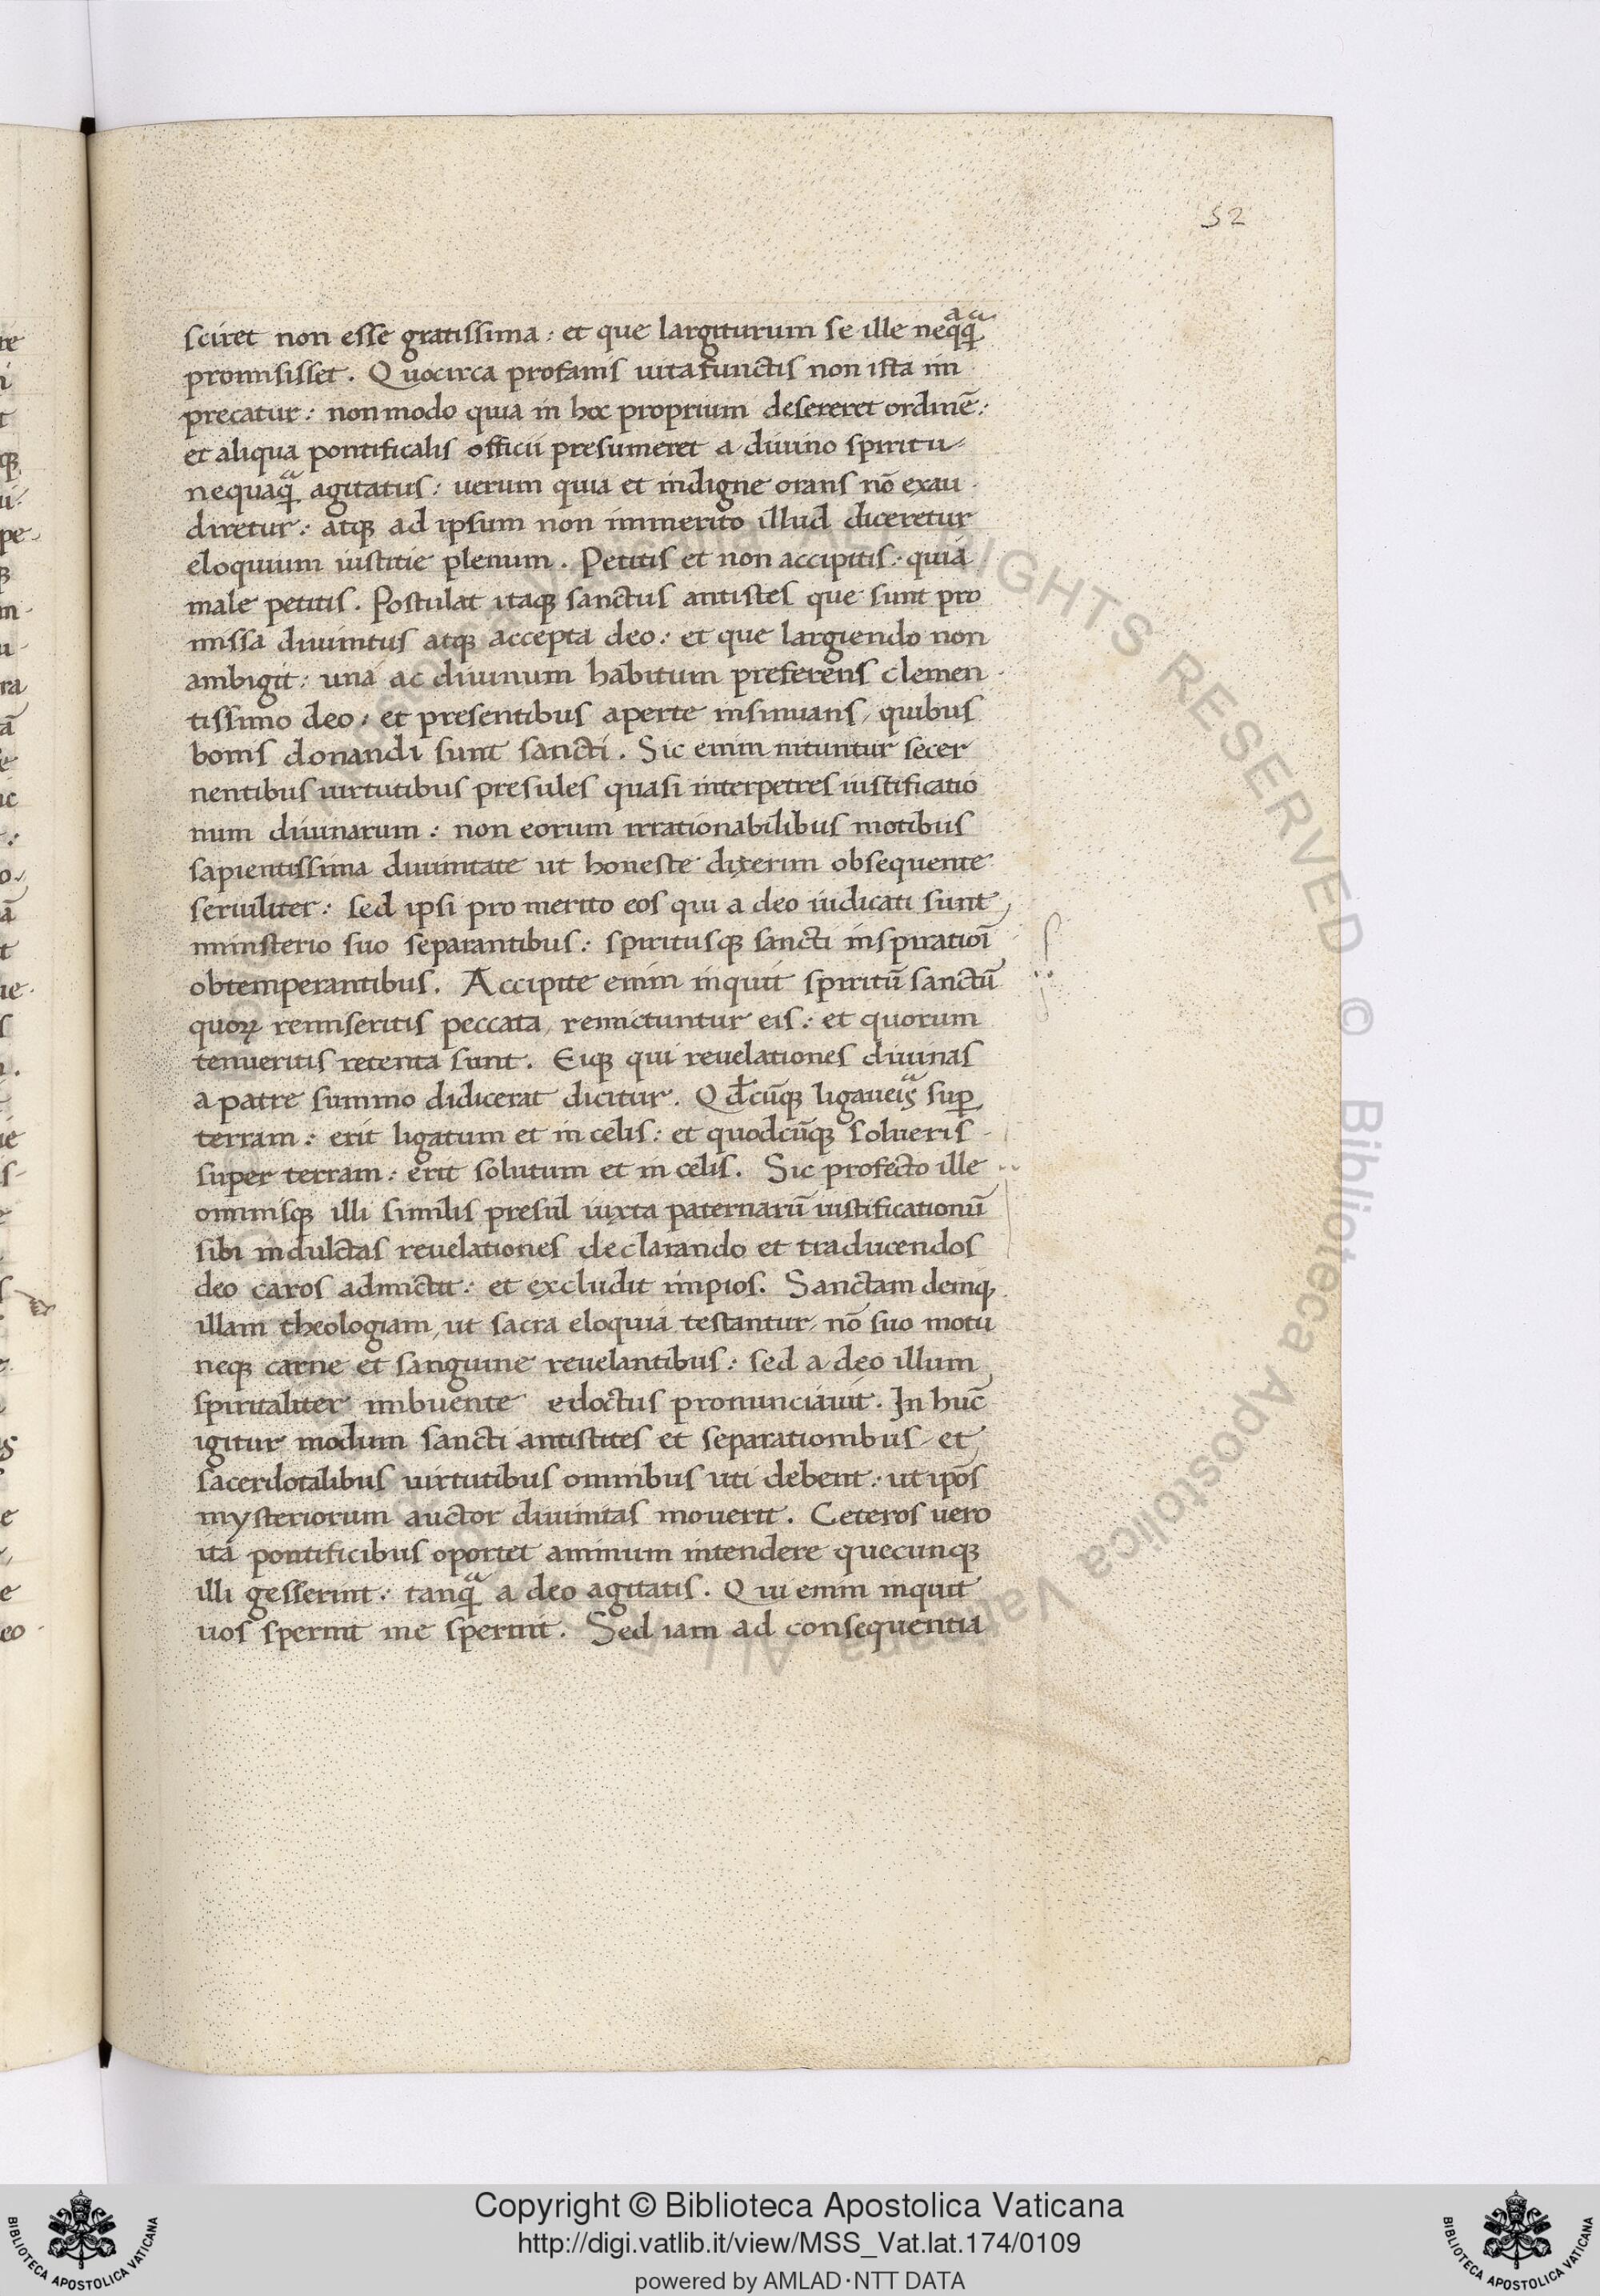 52
sciret non esse gratissima: et que largiturum se ille neqͣqͣ
promisisset. Quocirca profanis uita functis non ista im
precatur: non modo quia in hoc proprium desereret ordinē:
et aliqua pontificalis officii presumeret a diuino spiritu
nequaqͣ agitatus: uerum quia et indigne orans nō exau
diretur: atqꝫ ad ipsum non immerito illud diceretur
eloquium iustitie plenum. Petitis et non accipitis: quia
male petitis. Postulat itaqꝫ sanctus antistes que sunt pro
missa diuinitus atqꝫ accepta deo: et que largiendo non
ambigit: una ac diuinum habitum preferens clemen
tissimo deo: et presentibus aperte insinuans, quibus
bonis donandi sunt sancti. Sic enim nituntur secer
nentibus uirtutibus presules quasi interpetres iustificatio
num diuinarum: non eorum irrationabilibus motibus
sapientissima diuinitate ut honeste dixerim obsequente
seruiliter: sed ipsi pro merito eos qui a deo iudicati sunt
ministerio suo separantibus: spiritusqꝫ sancti inspiratioī
obtemperantibus. Accipite enim inquit spiritū sanctū
quoꝝ remiseritis peccata, remictuntur eis: et quorum
tenueritis retenta sunt. Eiqꝫ qui reuelationes diuinas
a patre summo didicerat dicitur. Qđcūqꝫ ligaueiͣs suꝑ
terram: erit ligatum et in celis: et quodcūqꝫ solueris
super terram: erit solutum et in celis. Sic profecto ille
omnisqꝫ illi similis presul iuxta paternarū iustificationū
sibi indulctas reuelationes declarando et traducendos
deo caros admictit: et excludit impios. Sanctam deniqꝫ
illam theologiam, ut sacra eloquia testantur, nō suo motu
neqꝫ carne et sanguine reuelantibus: sed a deo illum
spiritaliter imbuente edoctus pronunciauit. In hūc
igitur modum sancti antistites et separationibus et
sacerdotalibus uirtutibus omnibus uti debent: ut ipōs
mysteriorum auctor diuinitas mouerit. Ceteros uero
ita pontificibus oportet animum intendere quecunqꝫ
illi gesserint: tanqͣ a deo agitatis. Qui enim inquit
uos spernit me spernit. Sed iam ad consequentia
Copyright © Biblioteca Apostolica Vaticana
http://digi.vatlib.it/view/MSS_Vat.lat.174/0109
powered by AMLAD·NTT DATA
BIBLIOTECA APOSTOLICA VATICANA
BIBLIOTECA APOSTOLICA VATICANA